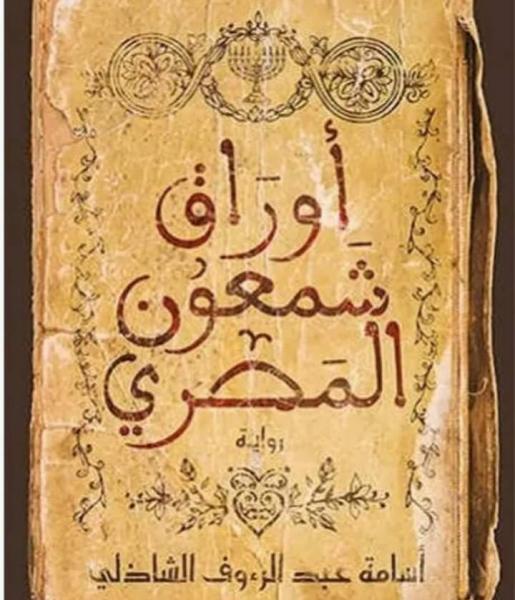 أوراق
شمعون
المصري
رواية
أسامة عبد الرءوف الشاذلي